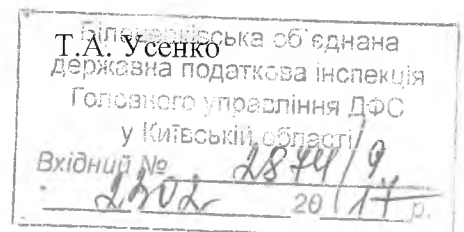 Т.А. Усенко
Білоцерківська об'єднана
державна податкова інспекція
Головного управління ДФС
у Київській області
Вхідний № 2874/9
2202 2017 р.